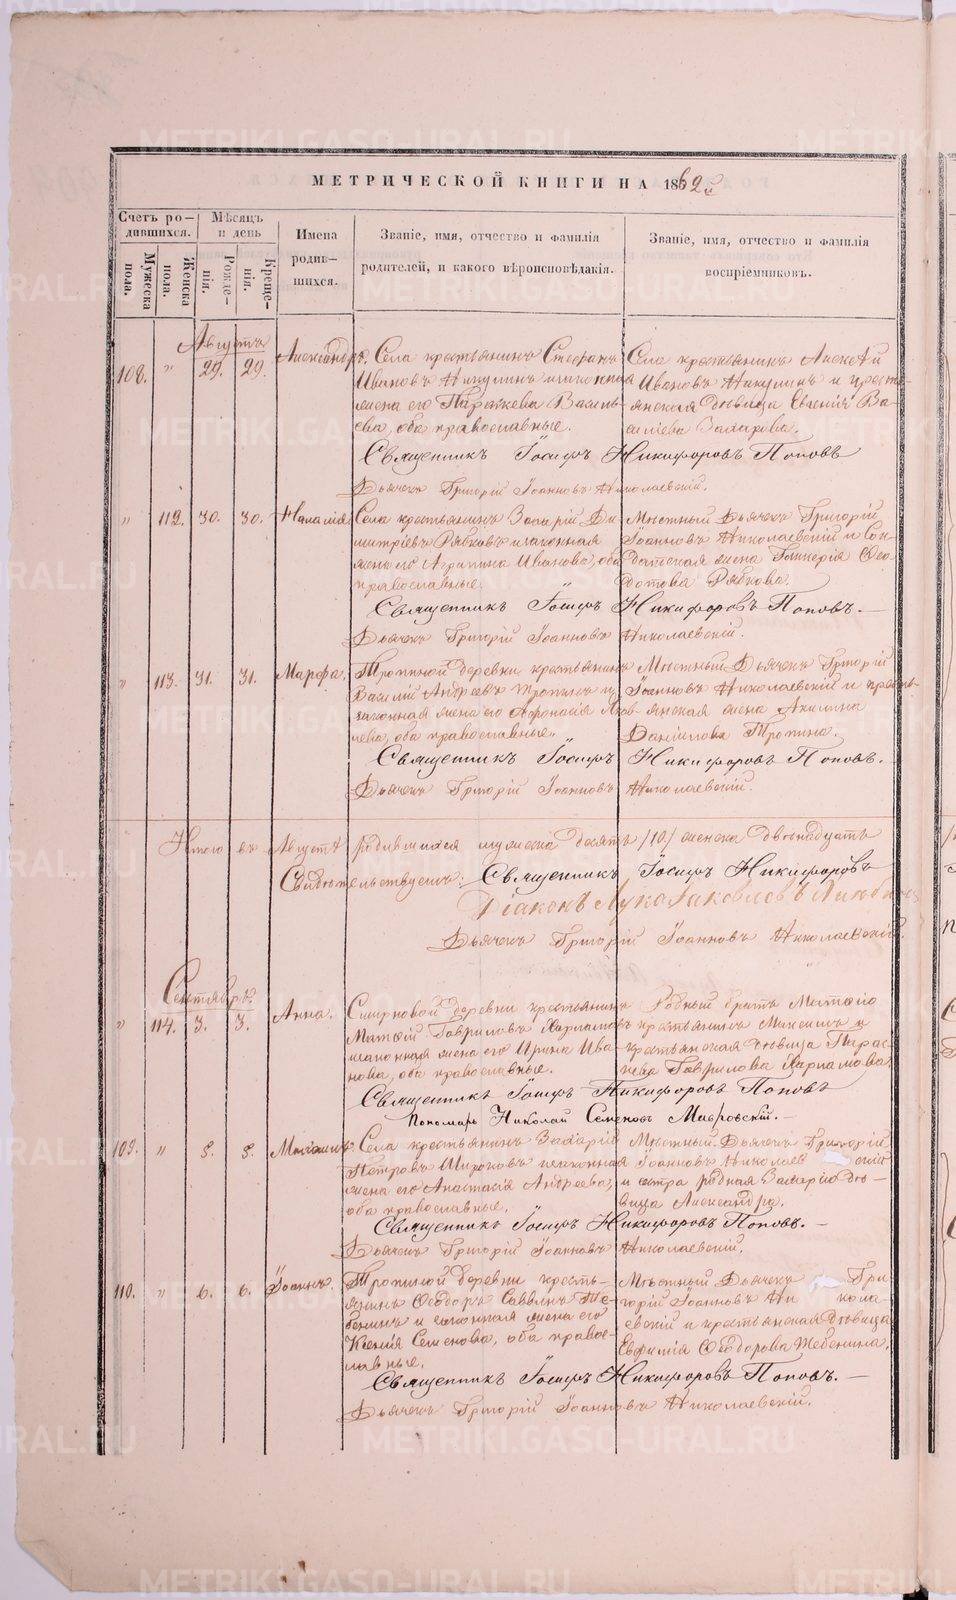 МЕТРИЧЕСКОЙ КНИГИ НА 1862 й
Счетъ родившихся.
Мѣсяцъ и день
Имена родившихся.
Званіе, имя, отчество и фамилія родителей, и какого вѣроисповѣданія.
Званіе, имя, отчество и фамилія воспріемниковъ.
Мужеска пола.
Женска пола.
Рожденія.
Крещенія.
Августъ
108. " 29. 29. Александръ.
Села крестьянинъ Стефанъ
Ивановъ Никулинъ и законная
жена его Параскева Василь-
ева, оба православные.
Села крестьянинъ Алексѣй
Ивановъ Никулинъ и кресть-
янская дѣвица Евгенія Ва-
силіева Захарова.
Священникъ Іосифъ Никифоровъ Поповъ
Дьячекъ Григорій Іоанновъ Николаевскій.
" 112. 30. 30. Наталія
Села крестьянинъ Захарій Ди-
митріевъ Рябковъ и законная
жена его Агрипина Иванова, оба
православные.
Мѣстный Дьячекъ Григорій
Іоанновъ Николаевскій и Сол-
датская жена Гликерія Ѳео-
дотова Рябкова.
Священникъ Іосифъ Никифоровъ Поповъ.
Дьячекъ Григорій Іоанновъ Николаевскій.
" 113. 31. 31. Марфа.
Тропиной деревни крестьянинъ
Василій Андреевъ Тропинъ и
законная жена его Афонасія Яков-
лева, оба православные.
Мѣстный Дьячекъ Григорій
Іоанновъ Николаевскій и кресть-
янская жена Акилина
Даніилова Тропина.
Священникъ Іосифъ Никифоровъ Поповъ.
Дьячекъ Григорій Іоанновъ Николаевскій.
Итого въ Августѣ родившихся мужеска десять /10/ женска двѣнадцать
Свидѣтельствуемъ: Священникъ Іосифъ Никифоровъ
Діаконъ Лука Іаковлевъ
Дьячекъ Григорій Іоанновъ Николаевскій
Сентябрь.
" 114. 3. 3. Анна.
Смирновой деревни крестьянинъ
Матѳій Гавриловъ Харламовъ
и законная жена его Ирина Ива-
нова, оба православные.
Родный братъ Матѳію
крестьянинъ Максимъ и
крестьянская дѣвица Парас-
кева Гаврилова Харламова.
Священникъ Іосифъ Никифоровъ Поповъ
Пономарь Николай Семеновъ Мавровскій.
109. " 5. 5. Михаилъ.
Села крестьянинъ Захарій
Петровъ Широковъ и законная
жена его Анастасія Андреева,
оба православные.
Мѣстный Дьячекъ Григорій
Іоанновъ Николаевскій
и сестра родная Захарію дѣ-
вица Александра.
Священникъ Іосифъ Никифоровъ Поповъ.
Дьячекъ Григорій Іоанновъ Николаевскій.
110. " 6. 6. Іоаннъ.
Тропиной деревни кресть-
янинъ Ѳеодоръ Саввинъ Же-
бенинъ и законная жена его
Ксенія Семенова, оба право-
славные.
Мѣстный Дьячекъ Гри-
горій Іоанновъ Никола-
евскій и крестьянская дѣвица
Евфимія Ѳеодорова Жебенина.
Священникъ Іосифъ Никифоровъ Поповъ.
Дьячекъ Григорій Іоанновъ Николаевскій.
METRIKI.GASO-URAL.RU